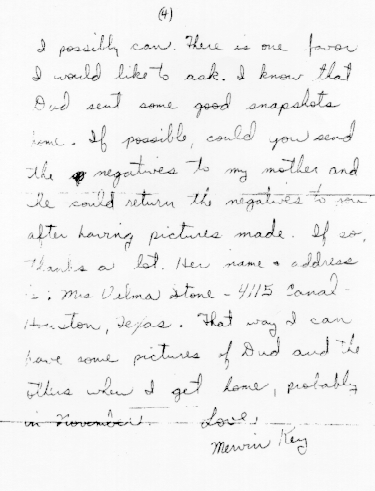 (4)
I possibly can. There is one favor
I would like to ask. I know that
Dad sent some good snapshots
home. If possible, could you send
the negatives to my mother and
he could return the negatives to you
after having pictures made. If so,
thanks a lot. Her name & address
is: Mrs Velma Stone - 4115 Canal -
Houston, Texas. That way I can
have some pictures of Dad and the
others when I get home, probably
in November. Love,
Mervin Key